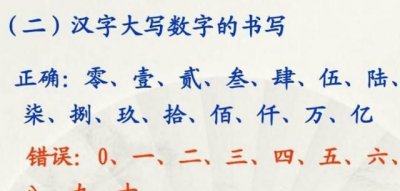 (二)汉字大写数字的书写
正确：零、壹、贰、叁、肆、伍、陆、
柒、捌、玖、拾、佰、仟、万、亿
错误：0、一、二、三、四、五、六、